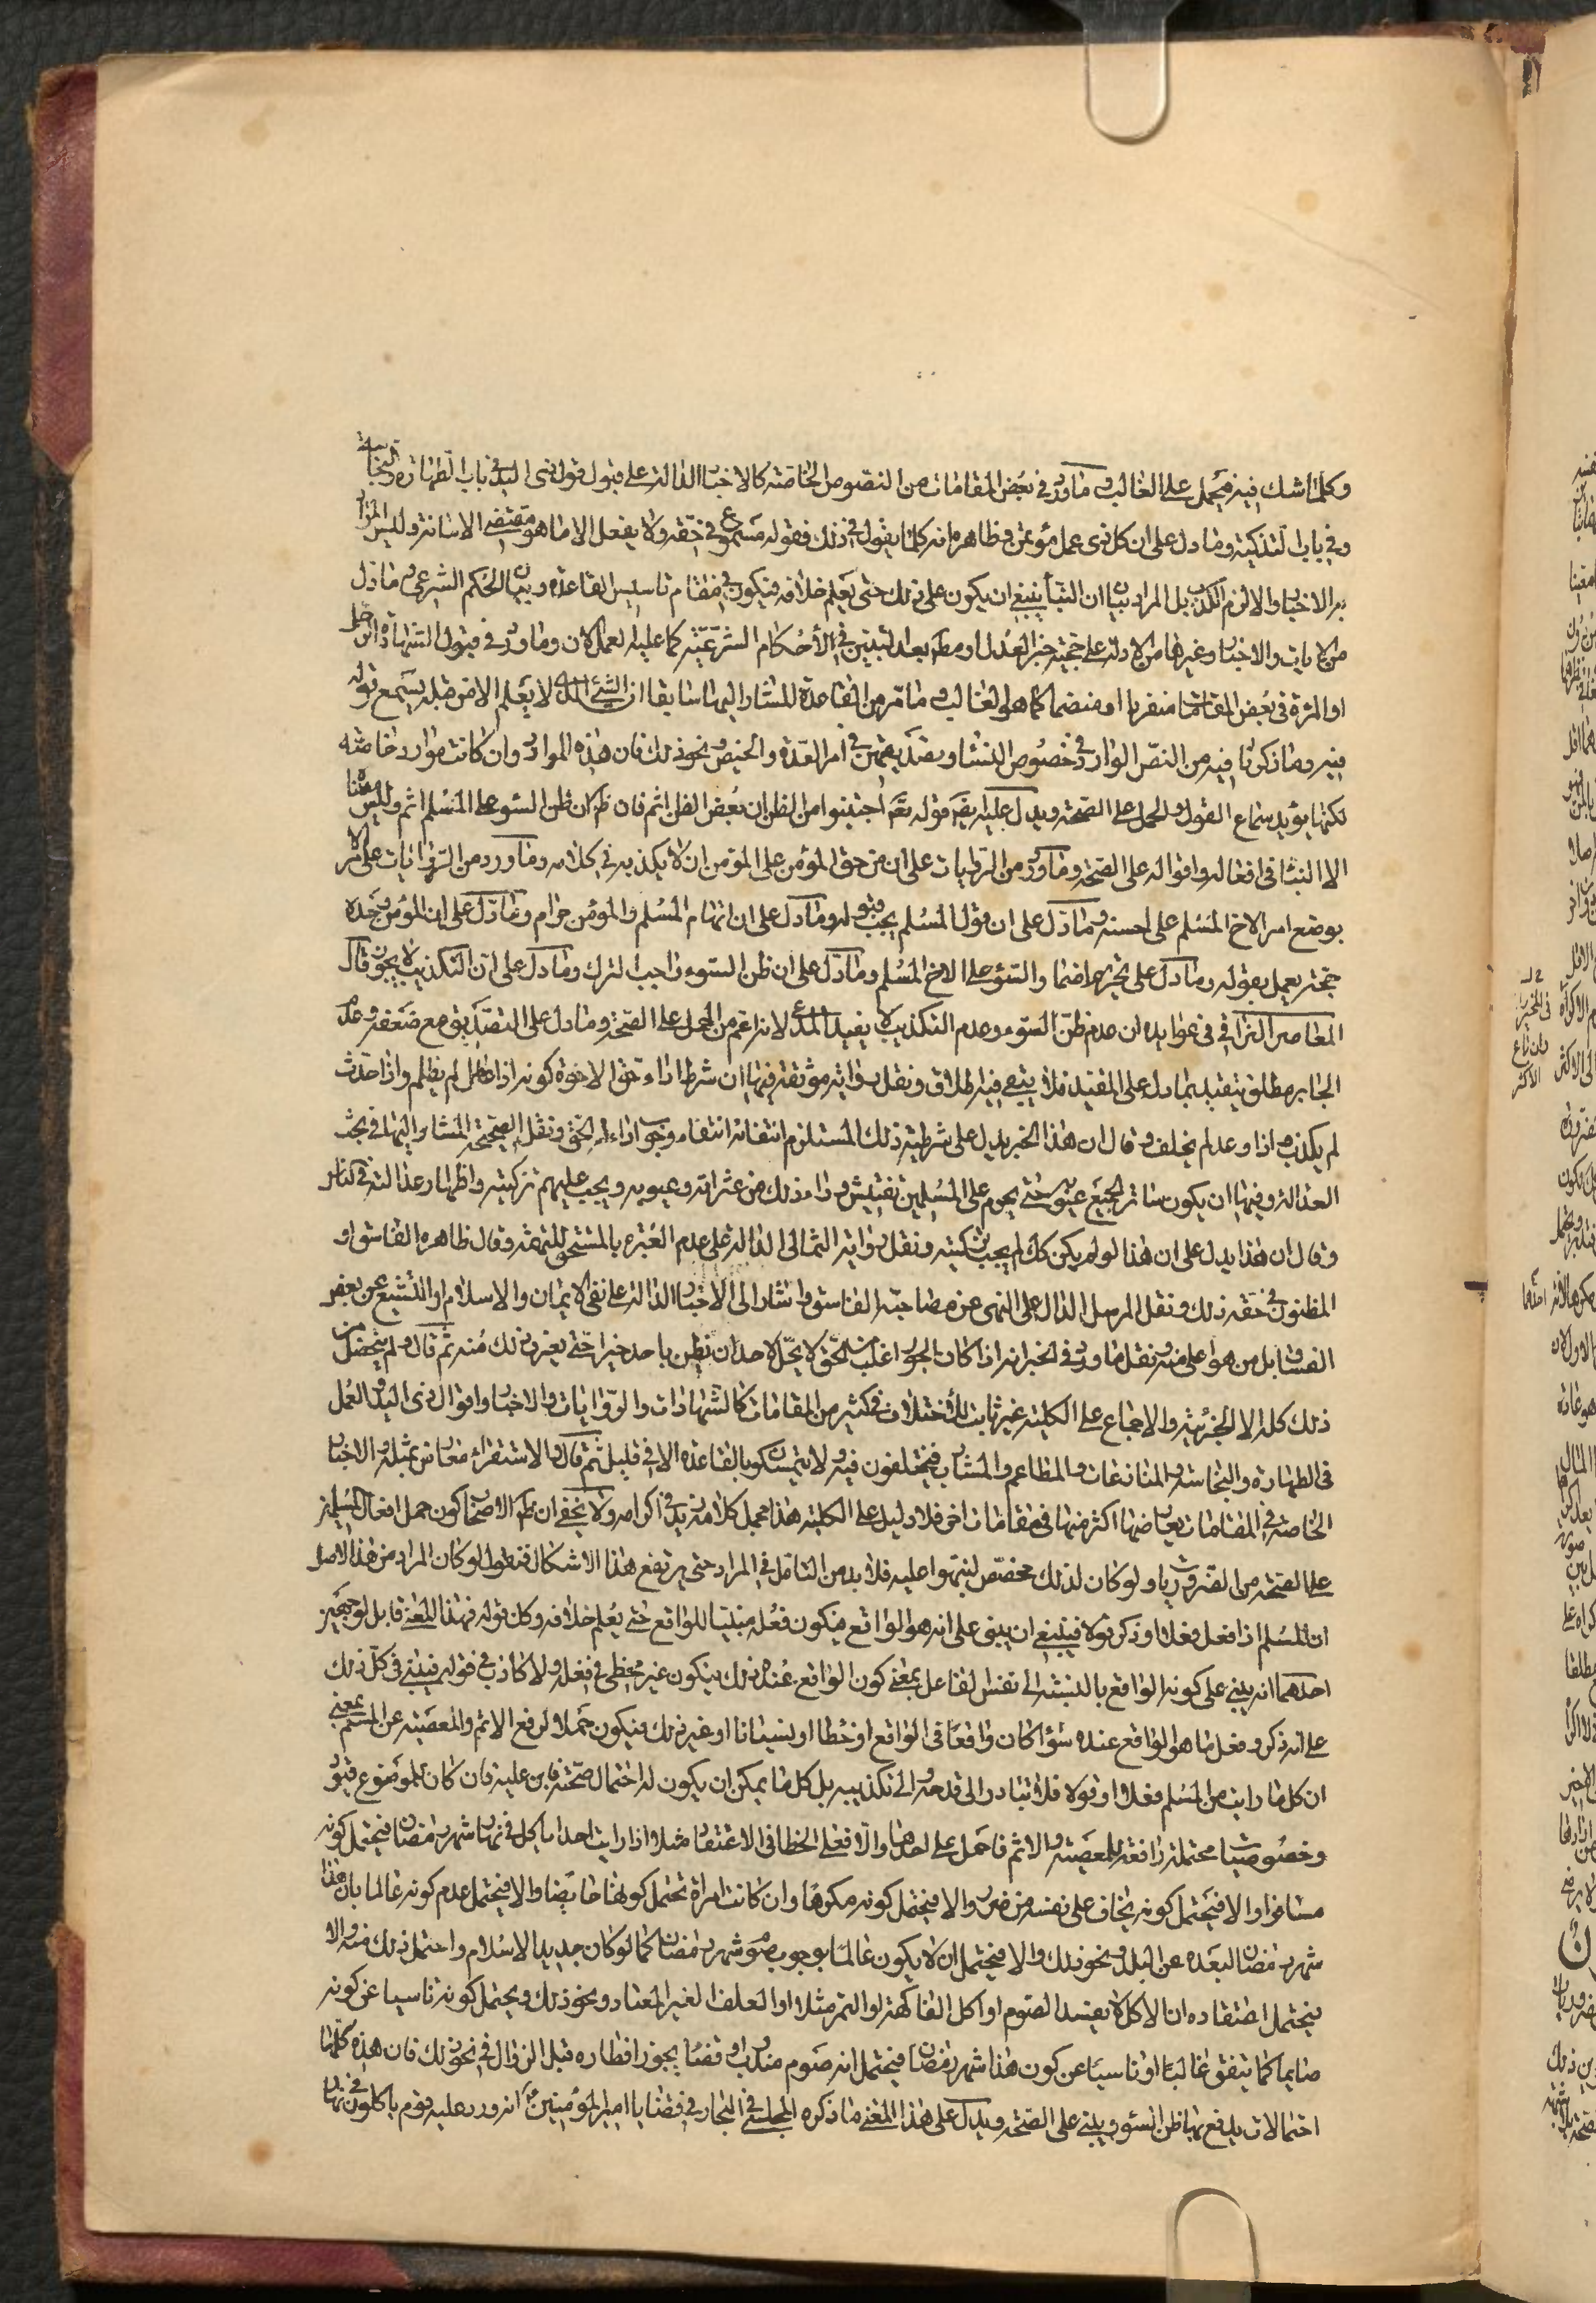 وكلما شك فيه فيحمل على الغالب وما ورد في بعض المقامات من النصوص الخاصة كالاخبار الدالة على قبول قول ذي اليد في باب الطهارة والنجاسة
وفي باب التذكية وما دل على ان كل ذي عمل مؤتمن وظاهره انه كلما يقول في ذلك فقوله مسموع في حقه ولا يفعل الا ما هو مقتضى الامانة وليس المراد
به الاخبار والا لزم الكذب بل المراد بيان ان البناء ينبغي ان يكون على ذلك حتى يعلم خلافه فيكون في مقام تاسيس القاعدة وبيان الحكم الشرعي وما دل
من الايات والاخبار وغيرها من الادلة على حجية خبر العدل او مط بعد التبين في الأحكام الشرعية كما عليه العمل الان وما ورد في قبول الشهادة من الرجل
او المرءة في بعض المقامات منفردا او منضما كما هو الغالب وما مر من القاعدة المشار اليها سابقا ان الشئ الذي لا يعلم الا من قبله يسمع قوله
فيه وما ذكرنا فيه من النص الوارد في خصوص النساء وتصديقهن في امر العدة والحيض ونحو ذلك فان هذه الموارد وان كانت موارد خاصة
لكنها يؤيد سماع القول والحمل على الصحة ويدل عليه ايضا قوله تعالى اجتنبوا من الظن ان بعض الظن اثم فان ظاهره كان ظن السوء على المسلم اثم وليس معنا
الا البناء في افعاله واقواله على الصحة وما ورد من الروايات على ان من حق المؤمن على المؤمن ان لا يكذبه في كلامه وما ورد من الروايات على الامر
بوضع امر الاخ المسلم على احسنه وما دل على ان قول المسلم يجب قبوله وما دل على ان اتهام المسلم والمؤمن حرام وما دل على ان المؤمن وحده
حجة يعمل بقوله وما دل على تحريم اضمار السوء على الاخ المسلم وما دل على ان ظن السوء واجب الترك وما دل على ان التكذيب لا يجوز قال
المعاصر النراقي في عوايده ان عدم ظن السوء وعدم التكذيب لا يفيد المدعى لانه اعم من الحمل على الصحة وما دل على التصديق مع ضعفه وعدم
الجابر مطلق يتقيد بما دل على المقيد فلا يبقى فيه اطلاق ونقل رواية موثقة فيها ان شرط اداء حق الاخوة كونه اذا عامل لم يظلم واذا حدث
لم يكذب واذا وعد لم يخلف وقال ان هذا الخبر يدل على شرطية ذلك المستلزم انتفائه انتفاء وجوب اداء الحق ونقل الصحيحة المشار اليها في بحث
العدالة وفيها ان يكون ساترا لجميع عيوبه حتى يحرم على المسلمين تفتيش ما وراء ذلك من عثراته وعيوبه ويجب عليهم تزكيته واظهار عدالته في الناس
وقال ان هذا يدل على ان هذا لو لم يكن كك لم يجب تزكيته ونقل رواية الثمالي الدالة على عدم العبرة بالمستحق للتهمة وقال ظاهره الفاسق او
المظنون في حقه ذلك ونقل المرسل الدال على النهى عن مصاحبة الفاسق واشار الى الاخبار الدالة على نفي الايمان والاسلام او التشيع عن بعض
الفساق بل من هو اعلى منه ونقل ما ورد في الخبر انه اذا كان الجور اغلب من الحق لا يحل لاحد ان يظن باحد خيرا حتى يعرف ذلك منه ثم قال ولم يتحصل من
ذلك كله الا الجزئية والاجماع على الكلية غير ثابت للاختلاف في كثير من المقامات كالشهادات والروايات والاخبار واقوال ذي اليد والعمل
في الطهارة والنجاسة والمنازعات والمطاعم والمشارب فيختلفون فيه ولا يتمسكون بالقاعدة الا في قليل ثم قال والاستقراء معارض بمثله والاخبار
الخاصة في المقامات يعارضها اكثر منها في مقامات اخر فلا دليل على الكلية هذا مجمل كلامه زيد في اكرامه ولا يخفى ان ظاهر الاصحاب كون حمل افعال المسلمين
على الصحة من الضروريات ولو كان لذلك مخصص لنبهوا عليه فلا بد من التامل في المراد حتى يرتفع هذا الاشكال فنقول لو كان المراد من هذا الاصل
ان المسلم اذا فعل فعلا او ذكر قولا فينبغي ان يبنى على انه هو الواقع فيكون فعله مبنيا للواقع حتى يعلم خلافه وكل قوله فهذا المعنى قابل لوجهين
احدهما انه يبني على كونه الواقع بالنسبة الى نفس الفاعل بمعنى كون الواقع عنده ذلك فيكون غير مخطئ في فعله ولا كاذب في قوله فيبنى في كل ذلك
على انه ذكر وفعل ما هو الواقع عنده سواء كان واقعا في الواقع او خطأ او نسيانا او غير ذلك فيكون حملا لرفع الاثم والمعصية عن المسلم بمعنى
ان كل ما رايت من المسلم فعلا او قولا فلا تبادر الى قدحه والى تكذيبه بل كل ما يمكن ان يكون له احتمال صحة فابن عليه فان كان للموضوع قيود
وخصوصيات محتملة رافعة للمعصية والاثم فاحمل على احدها والا فعلى الخطا في الاعتقاد مثلا اذا رايت احدا ياكل في نهار شهر رمضان فيحتمل كونه
مسافرا والا فيحتمل كونه يخاف على نفسه من ضرر والا فيحتمل كونه مكرها وان كانت امراة تحتمل كونها حايضا والا فيحتمل عدم كونه عالما بان هذا
شهر رمضان لبعده عن البلد ونحو ذلك والا فيحتمل ان لا يكون عالما بوجوب صوم شهر رمضان كما لو كان جديد الاسلام واحتمل ذلك منه والا
فيحتمل اعتقاده ان الاكل لا يفسد الصوم او اكل الفاكهة او التمر مثلا او العلف الغير المعتاد ونحو ذلك ويحتمل كونه ناسيا عن كونه
صايما كما يتفق غالبا او ناسيا عن كون هذا شهر رمضان فيحتمل انه صوم مندوب او قضاء يجوز افطاره قبل الزوال في نحو ذلك فان هذه كلها
احتمالات يدفع بها ظن السوء ويبنى على الصحة ويدل على هذا المعنى ما ذكره المجلسي في البحار في قضايا امير المؤمنين انه ورد عليه قوم ياكلون في نهار